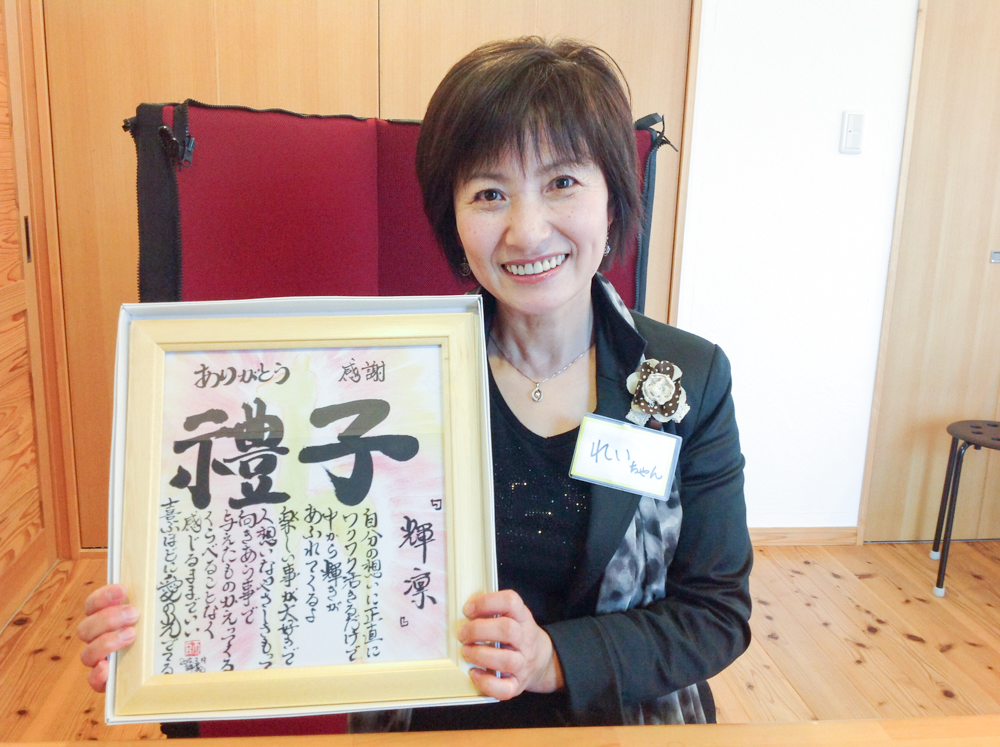 ありがとう 感謝
禮子
『輝凛』
自分の想いに正直に
ワクワク活きるだけで
中から輝きが
あふれてくるよ
楽しい事が大好きで
人想いやさしさもって
向きあう事で
与えたものがかえってくる
くらべることなく
感じるままでいい
喜ぶほどに愛の光
れい
ちゃん